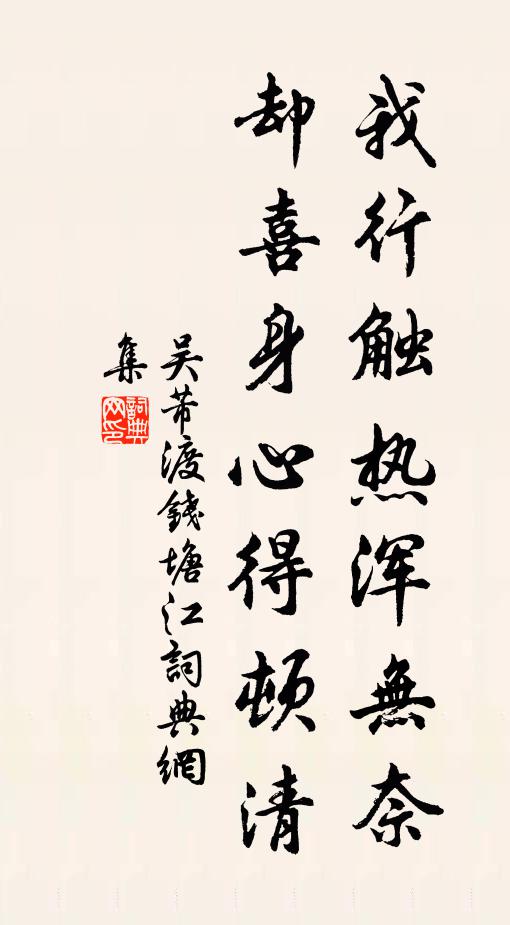 我行触热浑無奈
却喜身心得顿清
吴芾渡錢塘江詞典網
集
詞典
网印